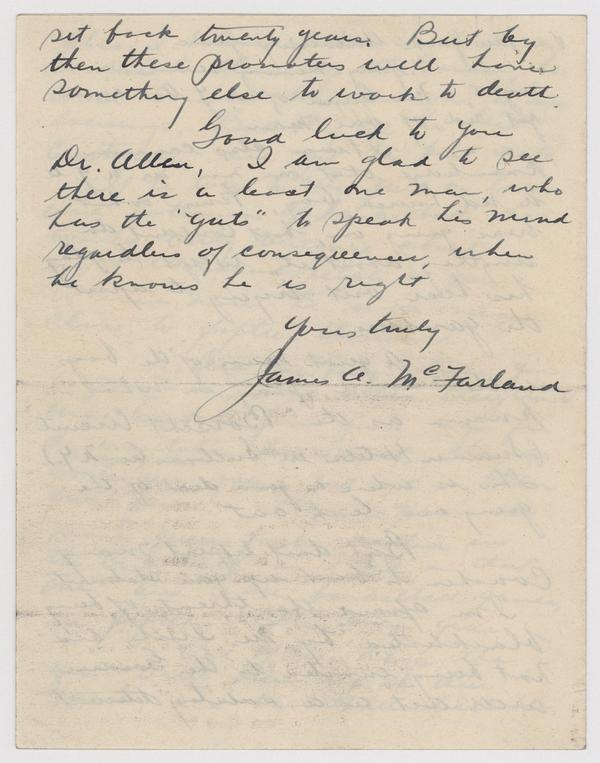 set back twenty years. But by
then these promoters will have
something else to work to death.
Good luck to you
Dr. Allen, I am glad to see
there is a least one man, who
has the "guts" to speak his mind
regardless of consequences, when
he knows he is right
Yours truly
James A. McFarland